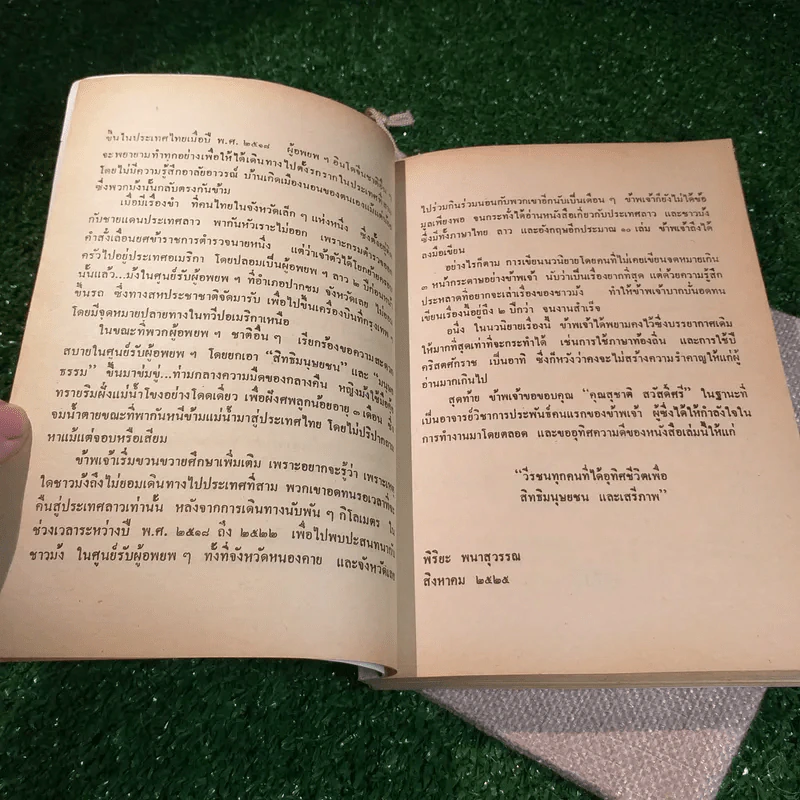 ขึ้นในประเทศไทยเมื่อปี พ.ศ. ๒๕๑๘ ผู้อพยพ ๆ อินโดจีนชาติอื่น ๆ
จะพยายามทำทุกอย่างเพื่อให้ได้เดินทางไปตั้งรกรากในประเทศที่สาม
โดยไม่มีความรู้สึกอาลัยอาวรณ์ บ้านเกิดเมืองนอนของตนเองแม้แต่น้อย
ซึ่งพวกม้งนั้นกลับตรงกันข้าม
เบื่อมีเรื่องขำ ที่คนไทยในจังหวัดเล็ก ๆ แห่งหนึ่ง ซึ่งตั้งอยู่
กับชายแดนประเทศลาว พากันหัวเราะไม่ออก เพราะกรมตำรวจ
คำสั่งเลื่อนยศข้าราชการตำรวจนายหนึ่ง แต่ว่าเจ้าตัวได้โยกย้าย
ครัวไปอยู่ประเทศอเมริกา โดยปลอมเป็นผู้อพยพ ๆ ลาว ๒ ปีก่อน
นั้นแล้ว...ม้งในศูนย์รับผู้อพยพ ๆ ที่อำเภอปากชม จังหวัดเลย
ขึ้นรถ ซึ่งทางสหประชาชาติจัดมารับ เพื่อไปขึ้นเครื่องบินที่กรุงเทพ ฯ
โดยมีจุดหมายปลายทางในทวีปอเมริกาเหนือ
ในขณะที่พวกผู้อพยพ ๆ ชาติอื่น ๆ เรียกร้องขอความสะดวก
สบายในศูนย์รับผู้อพยพ ๆ โดยยกเอา "สิทธิมนุษยชน" และ "มนุษย
ธรรม" ขึ้นมาข่มขู่...ท่ามกลางความมืดของกลางคืน หญิงม้งใช้มือ
ทรายริมฝั่งแม่น้ำโขงอย่างโดดเดี่ยว เพื่อฝังศพลูกน้อยอายุ ๓ เดือน ซึ่ง
จมน้ำตายขณะที่พากันหนีข้ามแม่น้ำมาสู่ประเทศไทย โดยไม่ปริปาก
หาแม้แต่จอบหรือเสียม
ข้าพเจ้าเริ่มขวนขวายศึกษาเพิ่มเติม เพราะอยากจะรู้ว่า เพราะเหตุ
ใดชาวม้งถึงไม่ยอมเดินทางไปประเทศที่สาม พวกเขาอดทนรอเวลาที่จะ
คืนสู่ประเทศลาวเท่านั้น หลังจากการเดินทางนับพัน ๆ กิโลเมตร ใน
ช่วงเวลาระหว่างปี พ.ศ. ๒๕๑๘ ถึง ๒๕๒๒ เพื่อไปพบปะสนทนากับ
ชาวม้ง ในศูนย์รับผู้อพยพ ๆ ทั้งที่จังหวัดหนองคาย และจังหวัดเลย
ไปร่วมกินร่วมนอนกับพวกเขาอีกนับเป็นเดือน ๆ ข้าพเจ้าก็ยังไม่ได้ข้อ
มูลเพียงพอ จนกระทั่งได้อ่านหนังสือเกี่ยวกับประเทศลาว และชาวม้ง
ซึ่งมีทั้งภาษาไทย ลาว และอังกฤษอีกประมาณ ๑๐ เล่ม ข้าพเจ้าถึงได้
ลงมือเขียน
อย่างไรก็ตาม การเขียนนวนิยายโดยคนที่ไม่เคยเขียนจดหมายเกิน
๓ หน้ากระดาษอย่างข้าพเจ้า นับว่าเป็นเรื่องยากที่สุด แต่ด้วยความรู้สึก
ประหลาดที่อยากจะเล่าเรื่องของชาวม้ง ทำให้ข้าพเจ้าบากบั่นอดทน
เขียนเรื่องนี้อยู่ถึง ๒ ปีกว่า จนงานสำเร็จ
อนึ่ง ในนวนิยายเรื่องนี้ ข้าพเจ้าได้พยายามคงไว้ซึ่งบรรยากาศเดิม
ให้มากที่สุดเท่าที่จะกระทำได้ เช่นการใช้ภาษาท้องถิ่น และการใช้ปี
คริสตศักราช เป็นอาทิ ซึ่งก็หวังว่าคงจะไม่สร้างความรำคาญให้แก่ผู้
อ่านมากเกินไป
สุดท้าย ข้าพเจ้าขอขอบคุณ "คุณสุชาติ สวัสดิ์ศรี" ในฐานะที่
เป็นอาจารย์วิชาการประพันธ์คนแรกของข้าพเจ้า ผู้ซึ่งได้ให้กำลังใจใน
การทำงานมาโดยตลอด และขออุทิศความดีของหนังสือเล่มนี้ให้แก่
"วีรชนทุกคนที่ได้อุทิศชีวิตเพื่อ
สิทธิมนุษยชน และเสรีภาพ"
พิริยะ พนาสุวรรณ
สิงหาคม ๒๕๒๕